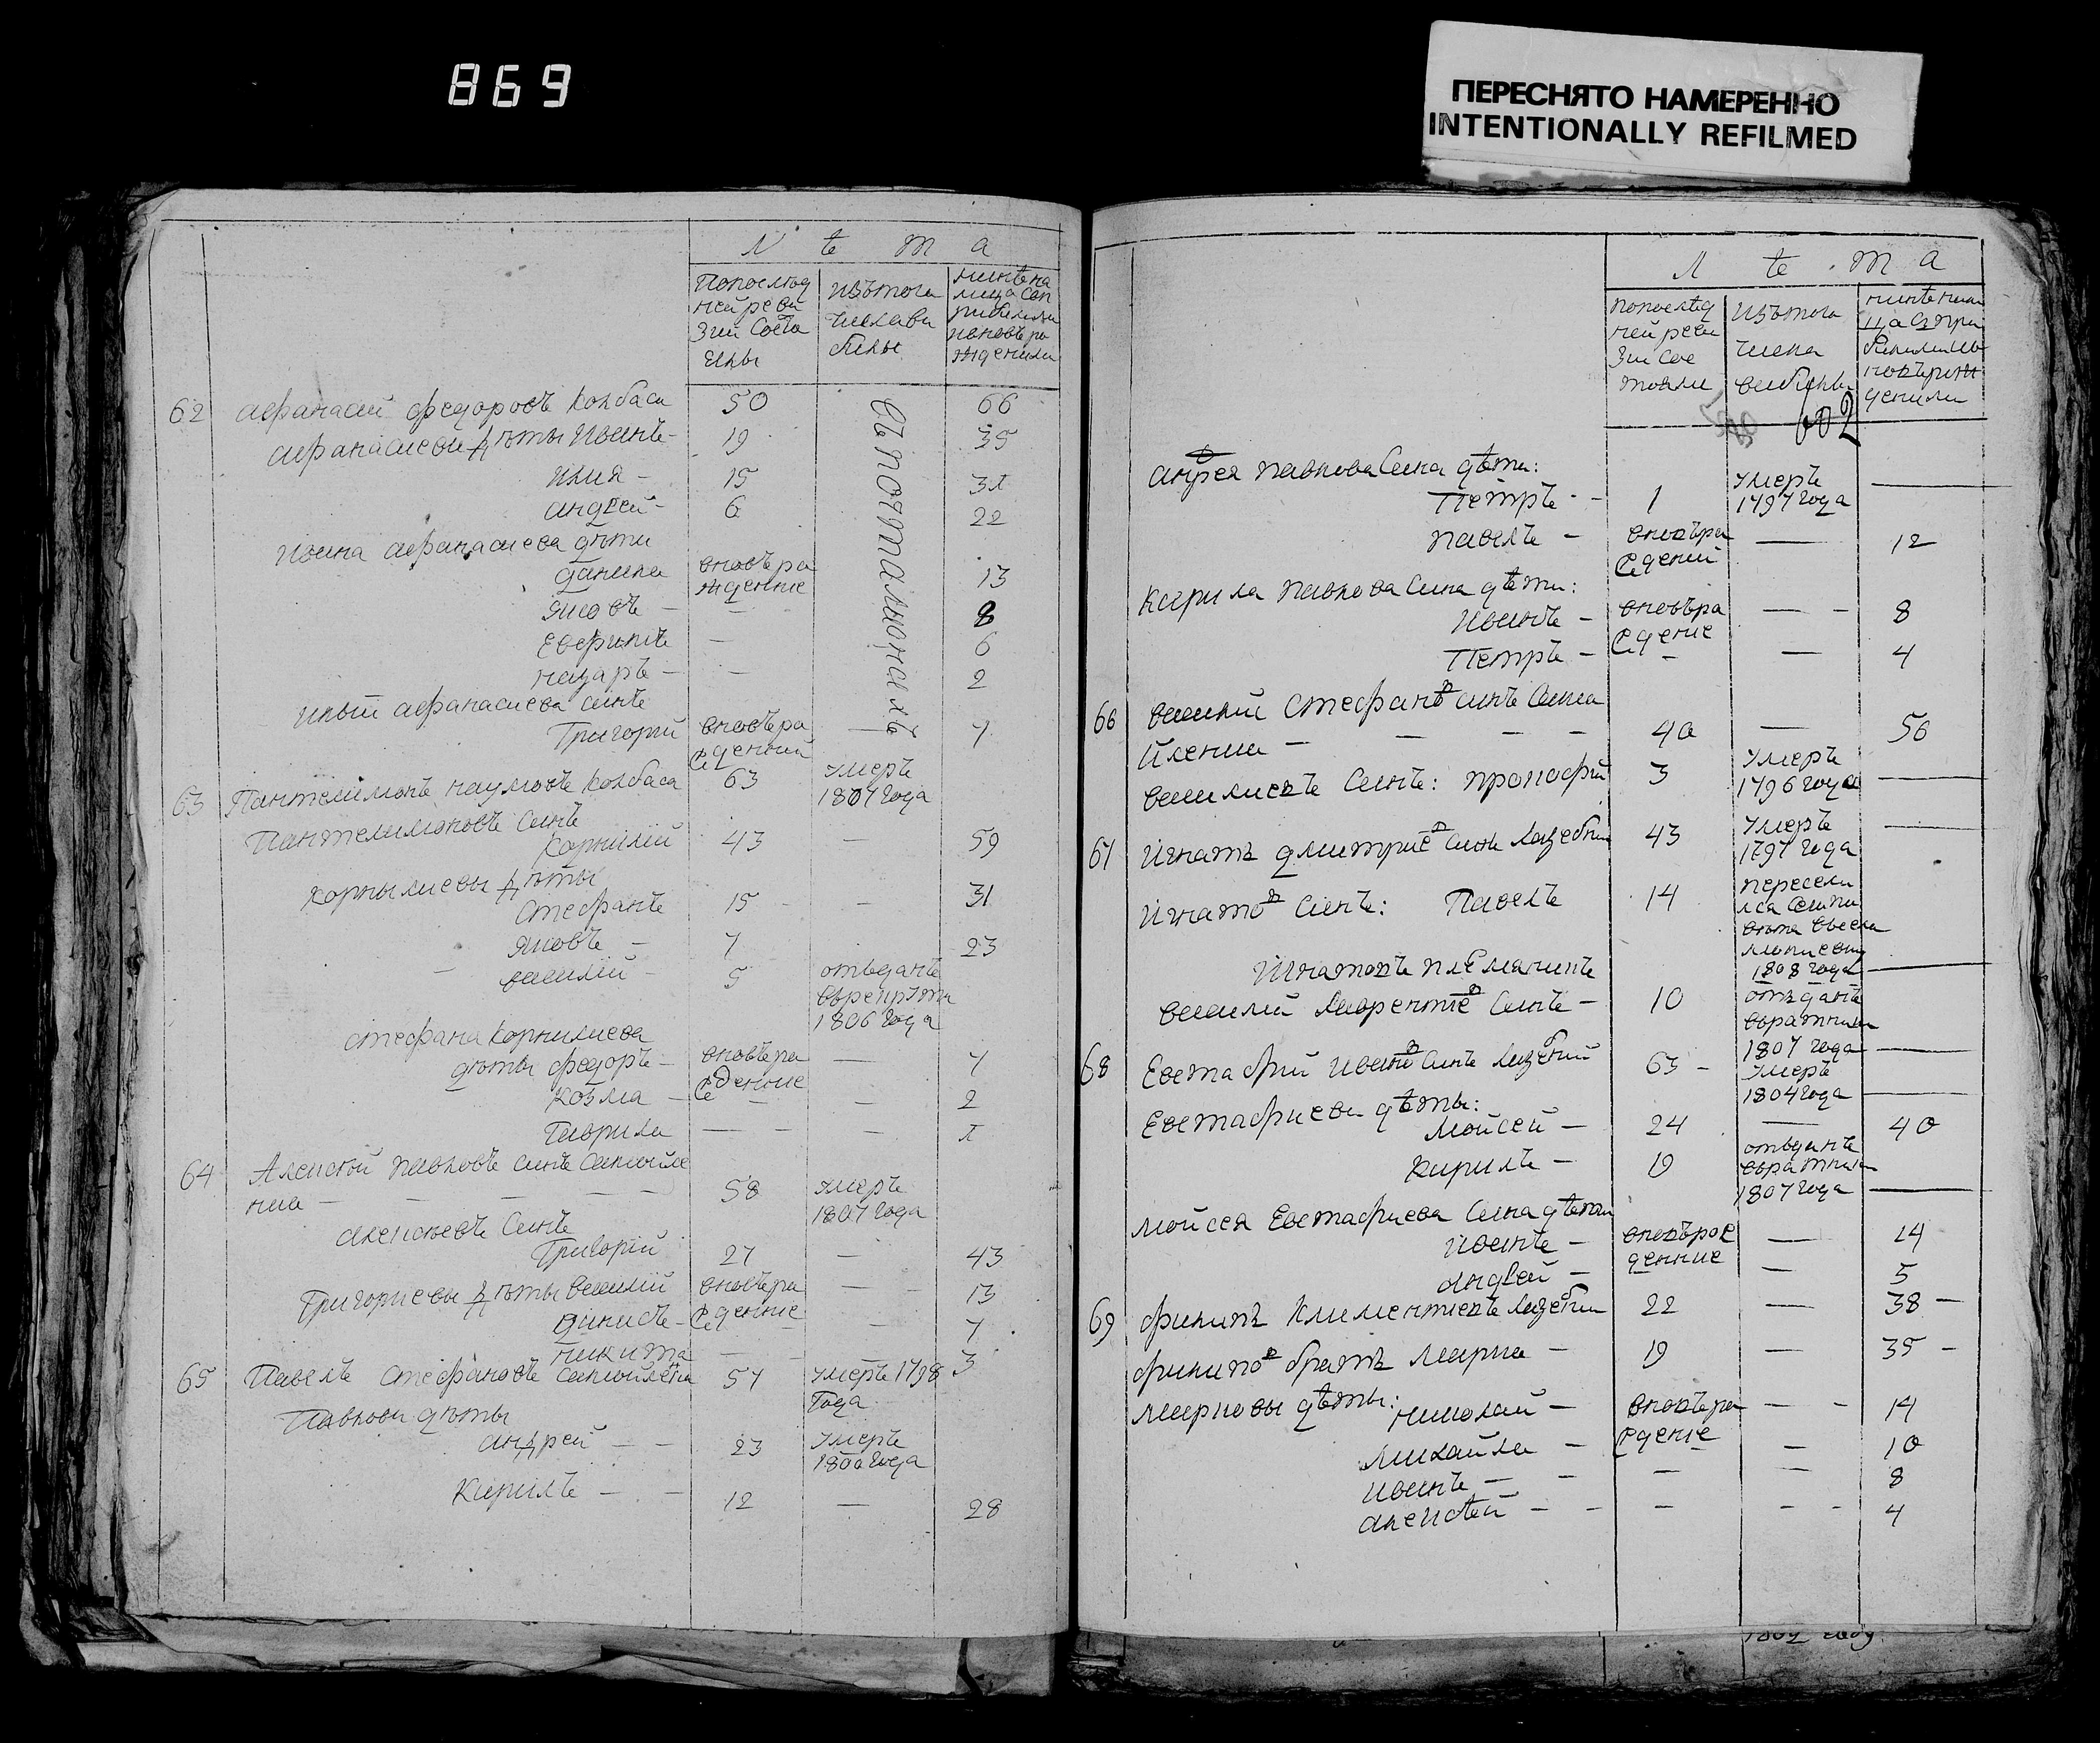 869
ПЕРЕСНЯТО НАМЕРЕННО
INTENTIONALLY REFILMED
Л ѣ т а
Попослѣд
ней реви
зии Состо
яли
Изътого
числави
были
нинѣна
лицо Сон
Въ почталионахъ
62 афанасий федоровъ Колбаса 50 66
афанасиеви дѣты Иванъ - 19 35
Илия - 15 31
андрей - 6 22
Ивана афанасиева дѣти
данила вновъро 13
жденние
Яковъ - — 8
Евфимъ — 6
назаръ - — 2
Илыи афанасиева синъ
Григорий вновѣро — 7
жденний
63 Пантелимонъ наумовъ Колбаса 63 Умеръ
1807 года
Пантелимоновъ Синъ
Корнилий 43 — 59
Корнылиевы дѣты
Стефанъ 15 — 31
Яковъ - 7 23
василий - 5 отъданъ
врекруты
1806 года
стефана Корнилиева
дѣты федоръ - вновъро — 7
жденние
Козма - — — 2
Гаврила — — 1
64 Алексѣй павловъ синъ Самойле
нко — — — — 58 Умеръ
1807 года
алексѣевъ Синъ
Григорий 27 — 43
Григориевы дѣты василий вновъро — 13
жденние
динисъ - — 7
никита — — 3
65 Павелъ Стефановъ Самойленко 57 Умеръ 1798
года
Павлови дѣты
андрей — - 23 Умеръ
1800 года
Кирилъ — - 12 — 28
Л ѣ т а
попослѣд
ней реви
зии сос
тояли
Изътого
числа
вибили
602
андрея павлова Сина дѣти:
Петръ - - 1 Умеръ
1797 года —
павелъ - вновъро — 12
жdений
Кирила павлова Сина дѣти:
Иванъ - вновъро — - 8
жdение
Петръ - - — 4
66 василий Стефановъ синъ Само
йленко - - - - 40 — 56
василиевъ Синъ: прокофий 3 Умеръ
1796 года —
67 Игнатъ дмитриевъ синъ Лазебний 43 Умеръ
1797 года —
Игнатовъ Синъ: Павелъ 14 пересели
1808 года —
Игнатовъ племаникъ
василий Лаврентиевъ Синъ - 10 отъданъ
вратники
1807 года —
68 Евстафий Ивановъ Синъ Лазебний 63 - Умеръ
1804 года —
Евстафиеви дѣты:
Мойсей - 24 — 40
Кирилъ - 19 отъданъ
вратники
1807 года —
Мойсея Евстафиева Сина дѣти
Иванъ - вновърож — 14
денние
андрей - — 5
69 филипъ Климентиевъ Лазебни 22 — 38 -
филиповъ братъ Марко - 19 — 35 -
Марковы дѣты: николай - вновъро — - 14
жdение
Михайла - — 10
Иванъ - - — — 8
алексѣй - - - - - 4
1802 году